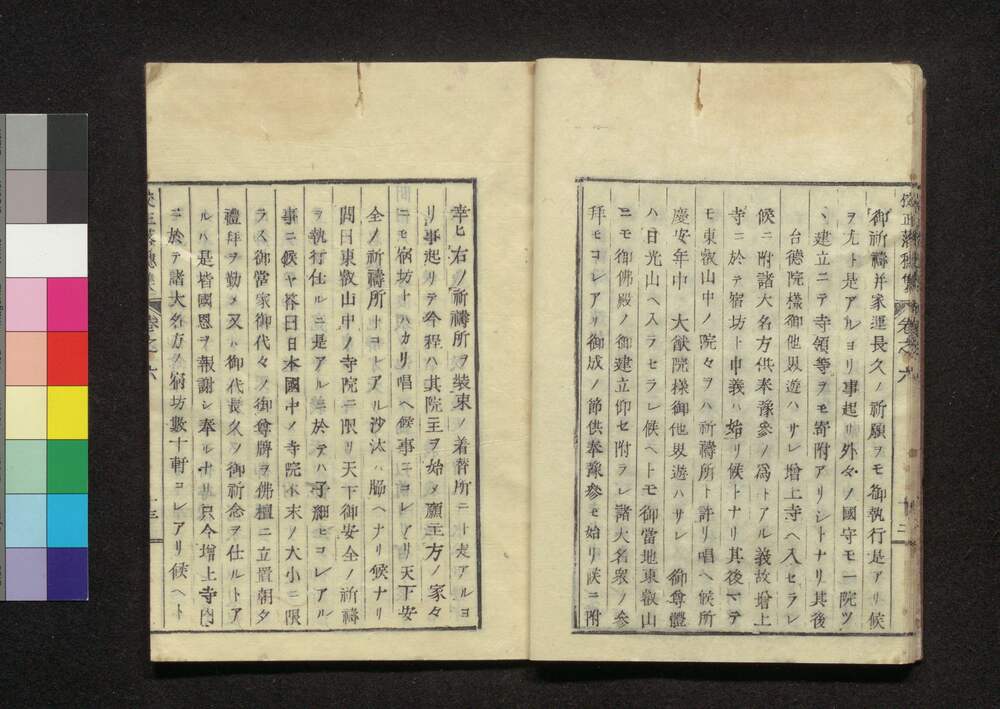 御祈禱并家運長久ノ祈願ヲモ御執行是アリ候
ヲ尤ト是アルヨリ事起リ外々ノ國守モ一院ツ
ヽ建立ニテ寺領等ヲモ寄附アリシトナリ其後
台德院樣御他界遊ハサレ增上寺ヘ入セラレ
候ニ附諸大名方供奉豫參ノ爲トアル義故增上
寺ニ於テ宿坊ト申義ハ始リ候トナリ其後マテ
モ東叡山中ノ院々ヲハ祈禱所ト許リ唱ヘ候所
慶安年中 大猷院樣御他界遊ハサレ 御尊體
ハ日光山ヘ入ラセラレ候ヘトモ御當地東叡山
ニモ御佛殿ノ御建立仰セ附ラレ諸大名衆ノ參
拜モコレアリ御成ノ節供奉豫參モ始リ候ニ附
幸ヒ右ノ祈禱所ヲ裝束ノ着替所ニト支アルヨ
リ事起リテ今程ハ其院主ヲ始メ願主方ノ家々
ニモ宿坊トハカリ唱ヘ候事ニコレアリ天下安
全ノ祈禱所トコレアル沙汰ハ脇ヘナリ候ナリ
問曰東叡山中ノ寺院ニ限リ天下御安全ノ祈禱
ヲ執行仕ルニ是アルニ於テハ子細ヒコレアル
事ニ候ヤ答曰日本國中ノ寺院本末ノ大小ニ限
ラス御當家御代々ノ御尊牌ヲ佛檀ニ立置朝夕
禮拜ヲ勤メ又ハ御代長久ノ御祈念ヲ仕ルトア
ルハ是皆國恩ヲ報謝シ奉ルナリ只今增上寺內
ニ於テ諸大名方ノ宿坊數十軒コレアリ候ヘト
卷之六
十三